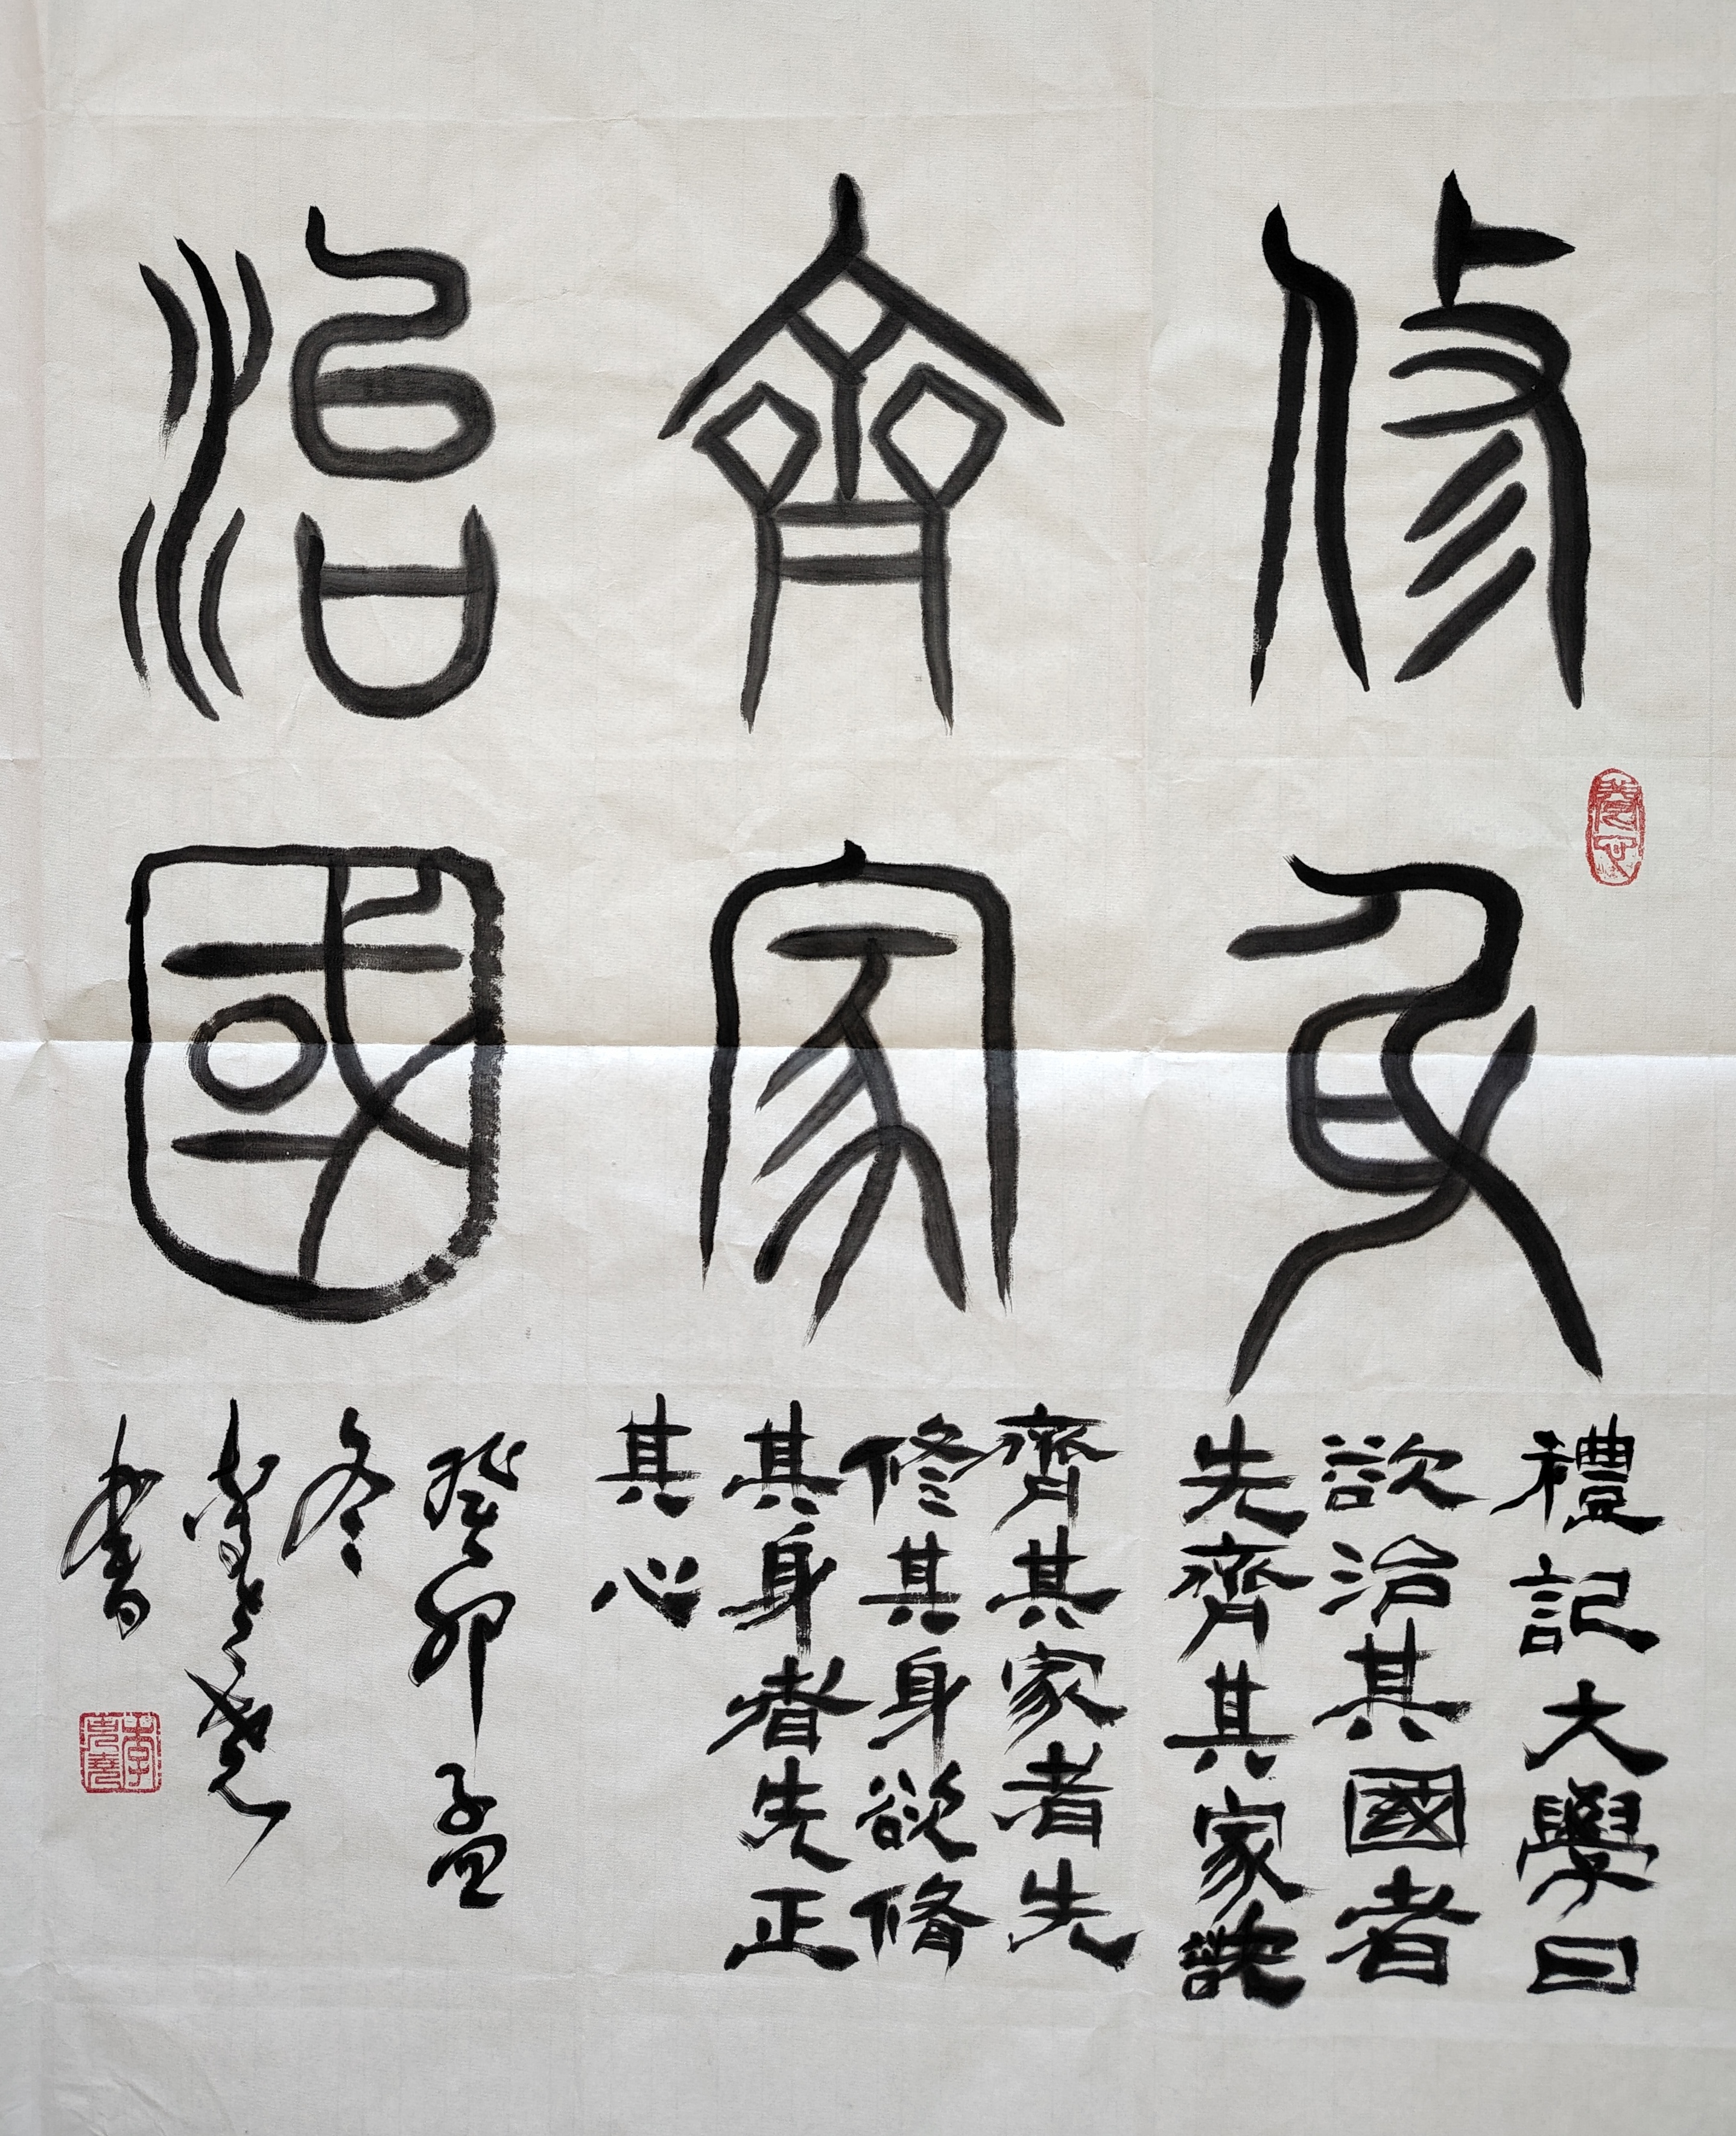 修身
齊家
治國
禮記大學曰
欲治其國者
先齊其家欲
齊其家者先
修其身欲修
其身者先正
其心
癸卯孟
冬
書